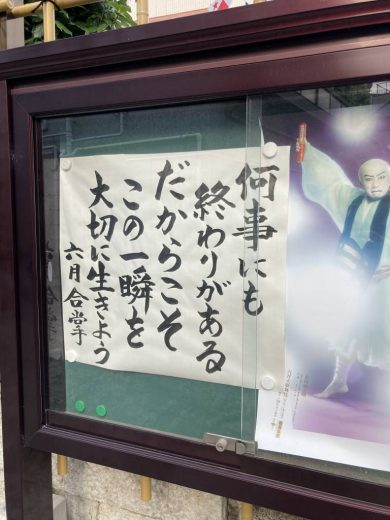 何事にも
終わりがある
だからこそ
この一瞬を
大切に生きよう
六月 合掌